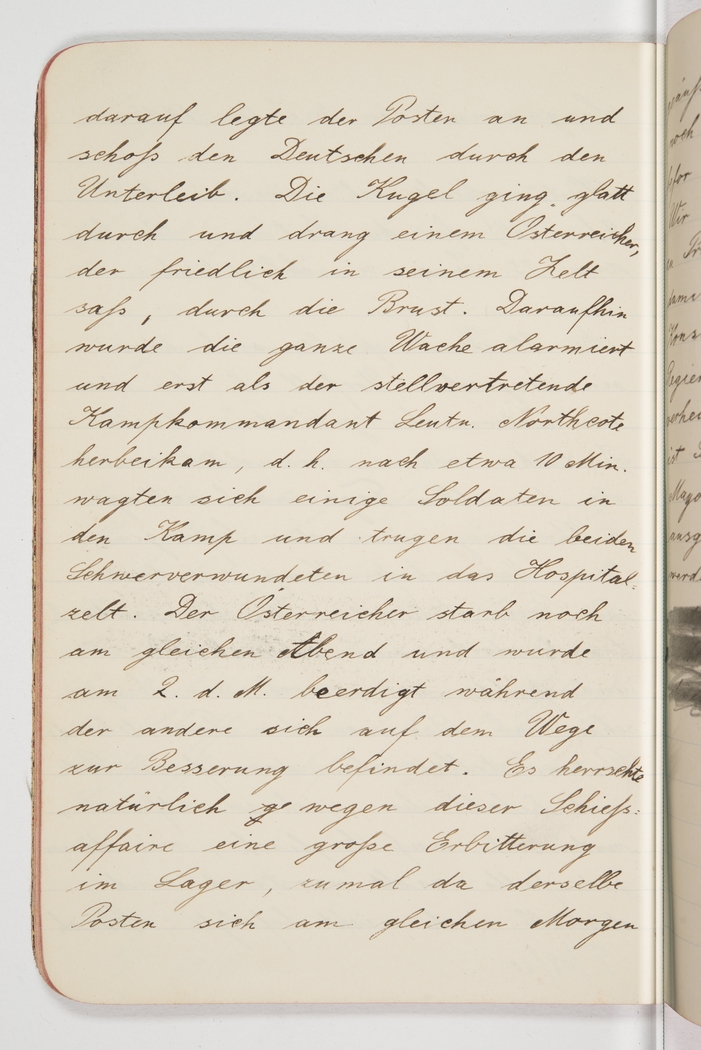 darauf legte der Posten an und
schoß den Deutschen durch den
Unterleib. Die Kugel ging glatt
durch und drang einem Österreicher,
der friedlich in seinem Zelt
saß, durch die Brust. Daraufhin
wurde die ganze Wache alarmiert
und erst als der stellvertretende
Kampkommandant Leutn. Northcote
herbeikam, d. h. nach etwa 10 Min.
wagten sich einige Soldaten in
den Kamp und trugen die beiden
Schwerverwundeten in das Hospital-
zelt. Der Österreicher starb noch
am gleichen Abend und wurde
am 2. d. M. beerdigt während
der andere sich auf dem Wege
zur Besserung befindet. Es herrschte
natürlich ge wegen dieser Schieß-
affaire eine große Erbitterung
im Lager, zumal da derselbe
Posten sich am gleichen Morgen